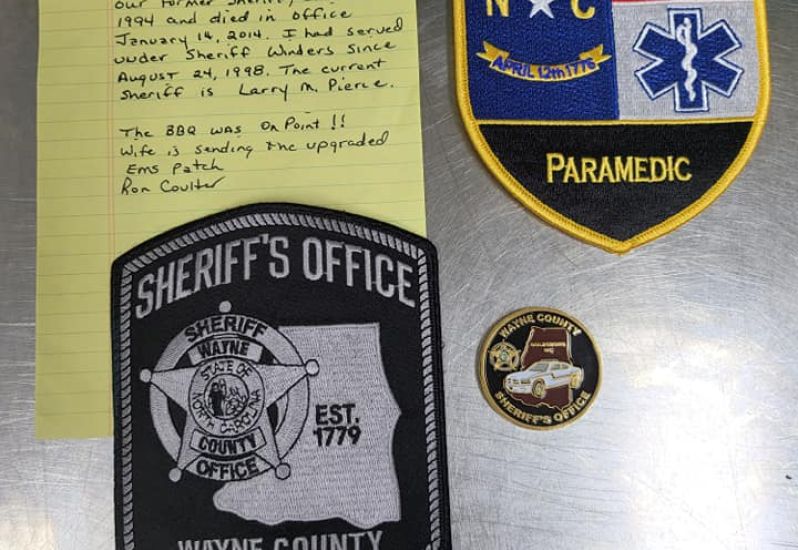 our former Sheriff,
1994 and died in office
January 14, 2014. I had served
under Sheriff Winders since
August 24, 1998. The current
Sheriff is Larry M. Pierce.
The BBQ was on Point !!
Wife is sending the upgraded
Ems Patch
Ron Coulter
N C
APRIL 12th 1776
PARAMEDIC
SHERIFF'S OFFICE
SHERIFF
WAYNE
STATE OF
NORTH CAROLINA
COUNTY
OFFICE
EST.
1779
WAYNE COUNTY
WAYNE COUNTY
GOLDSBORO
NC
SHERIFF'S OFFICE